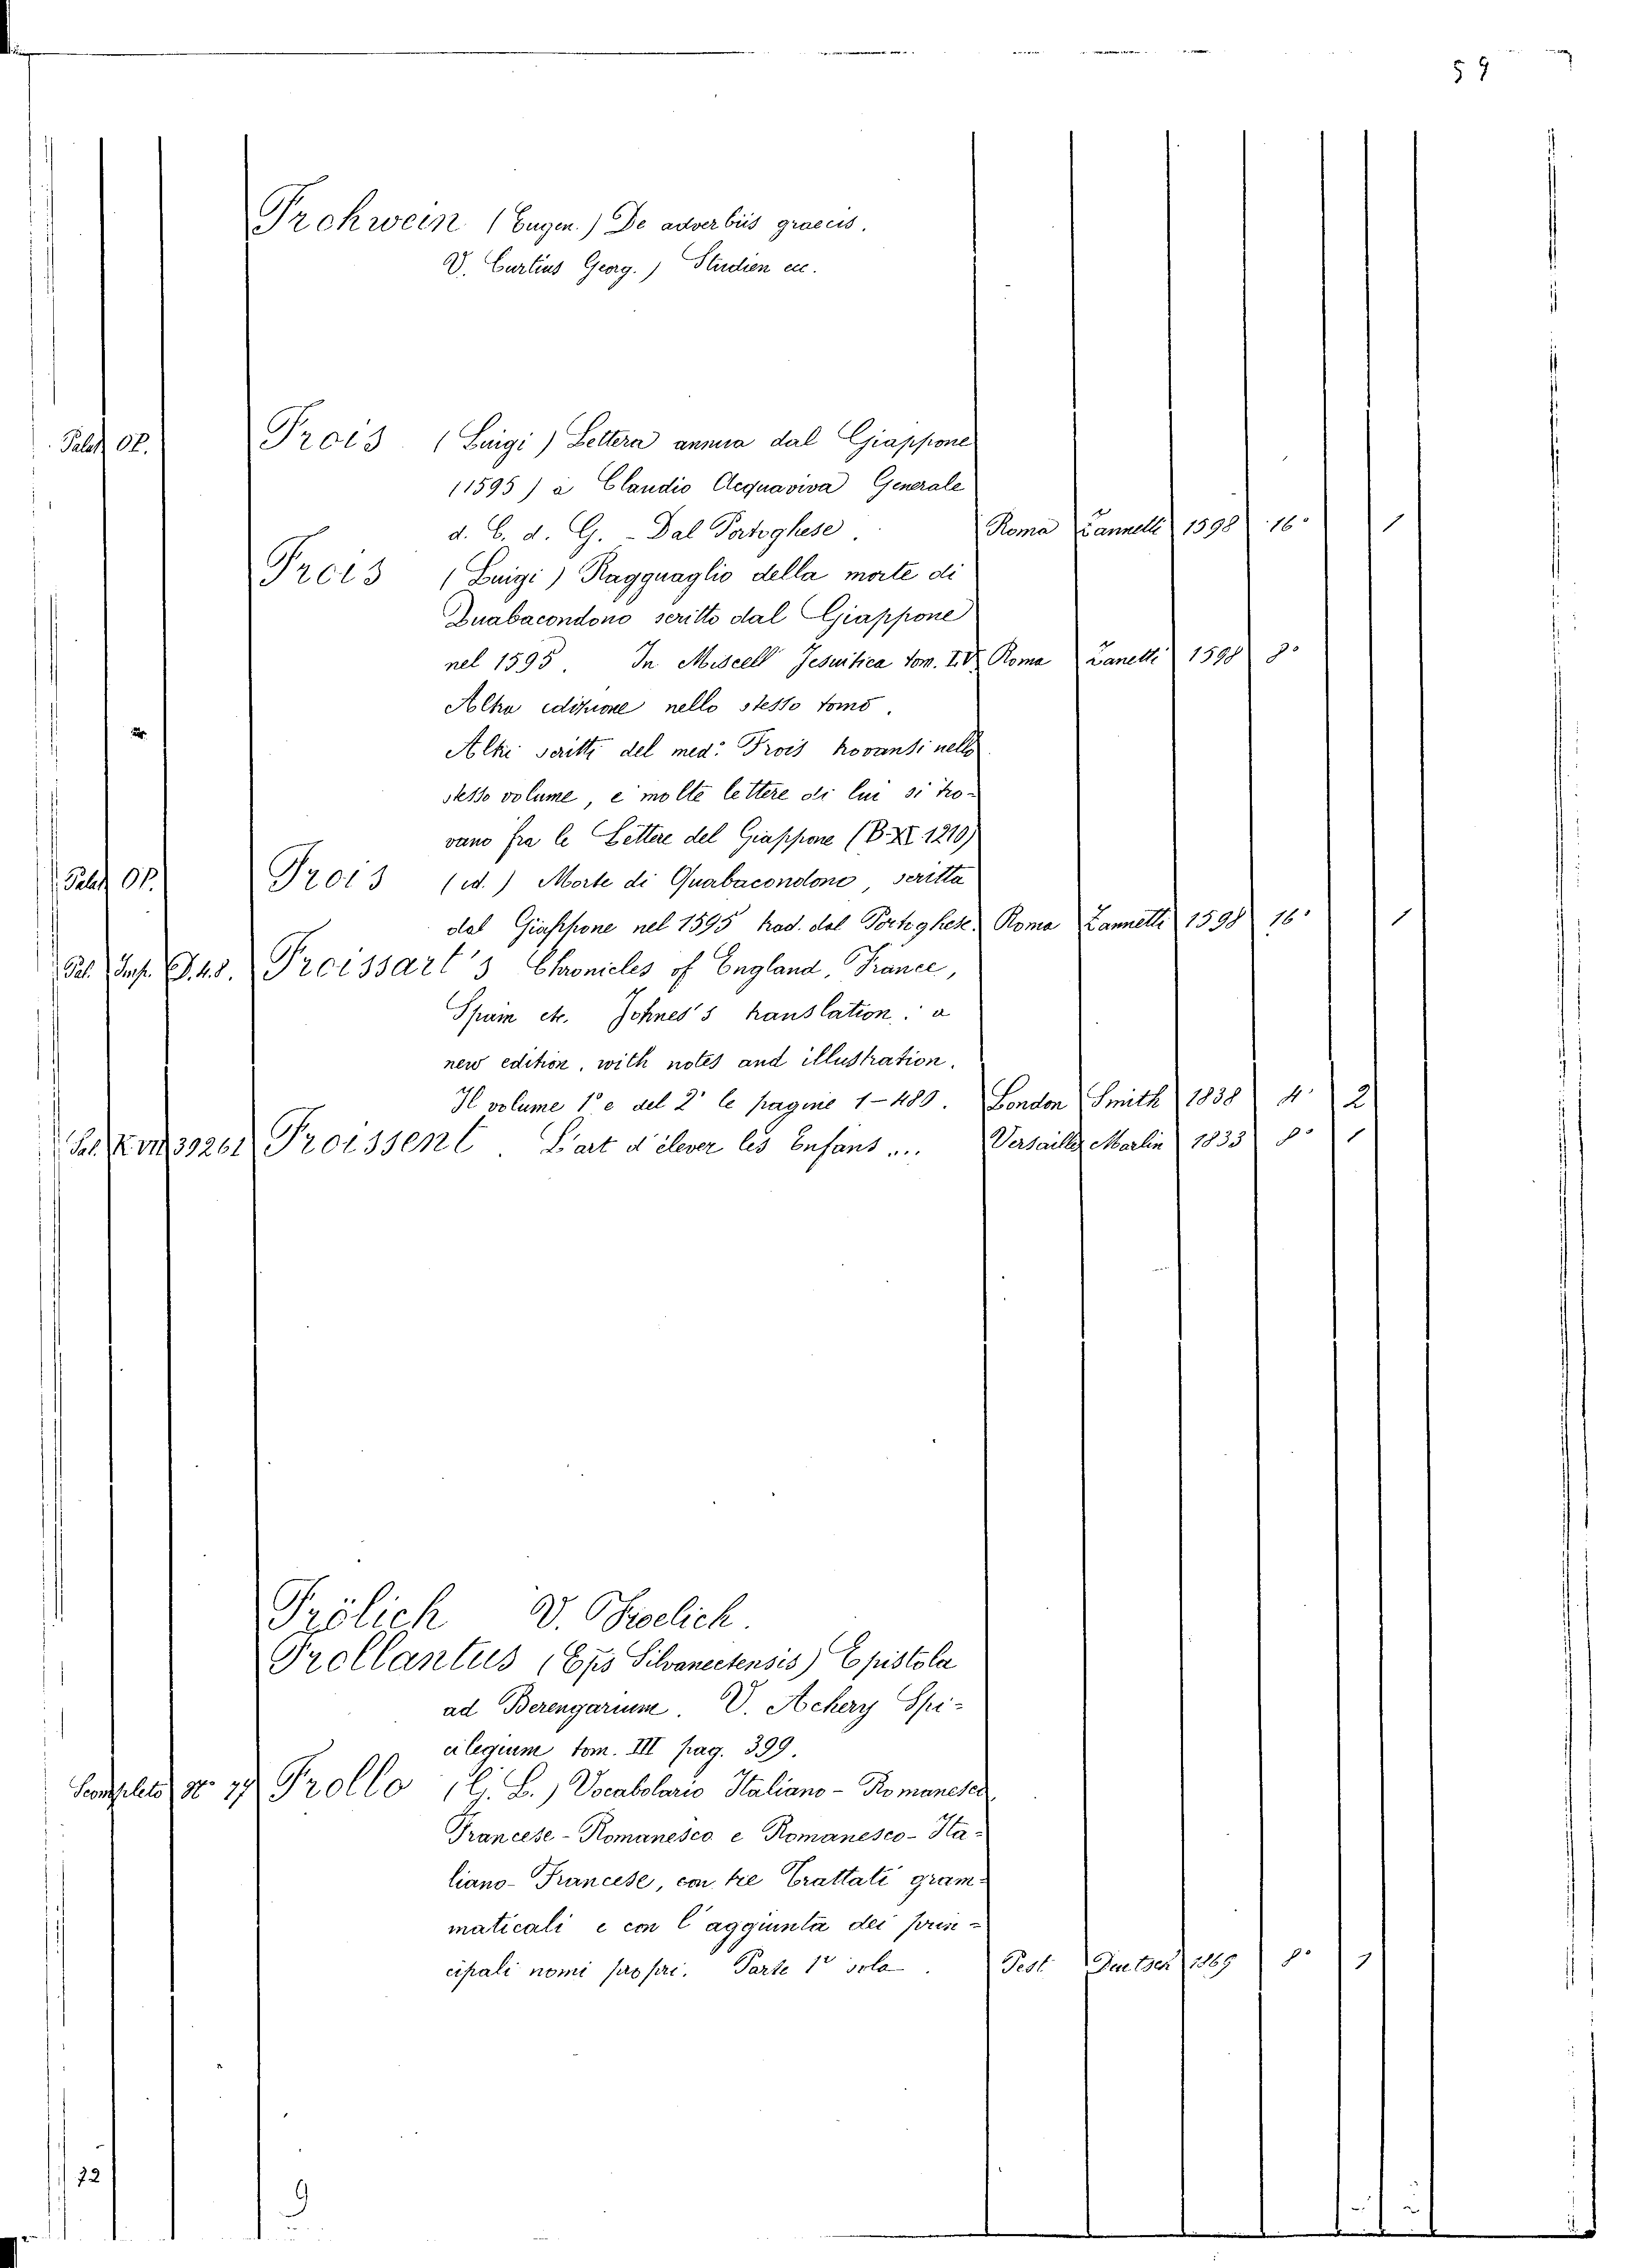 59
Frohwein (Eugen.) De adverbiis graecis.
V. Curtius Georg.) Studien ecc.
Palat OP. Frois (Luigi) Lettera annua dal Giappone
(1595) à Claudio Acquaviva Generale
d. C. d. G. - Dal Portoghese. Roma Zannetti 1598 16° 1
Frois (Luigi) Ragguaglio della morte di
Quabacondono scritto dal Giappone
nel 1595. In Miscell Jesuitica tom. IV Roma Zanetti 1598 8°
Altra edizione nello stesso tomo.
Altri scritti del med: Frois trovansi nello
stesso volume, e molte lettere di lui si tro-
vano fra le Lettere del Giappone (B. XI 1210)
Palat OP. Frois (id.) Morte di Quabacondono, scritta
dal Giappone nel 1595 trad. dal Portoghese. Roma Zannetti 1598 16° 1
Pal. Imp. 48. Froissart's Chronicles of England, France,
Spain etc. Johnes's translation: a
new edition, with notes and illustration.
Il volume 1° e del 2° le pagine 1-489. London Smith 1838 4° 2
Pal. 39261 Froissent. L'art d'élever les Enfans ... Versailles Marlin 1833 8° 1
Frölich V. Froelich.
Frollantus (Eps Silvanectensis) Epistola
ad Berengarium. V. Achery Spi-
cilegium tom. III pag. 399.
Scompleto N° 77 Frollo (G. B.) Vocabolario Italiano - Romanesco
Francese - Romanesco e Romanesco - Ita-
liano - Francese, con tre Trattati gram-
maticali e con l'aggiunta dei prin-
cipali nomi propri. Parte 1ª sola. Pest Deutsch 1869 8° 1
72
9